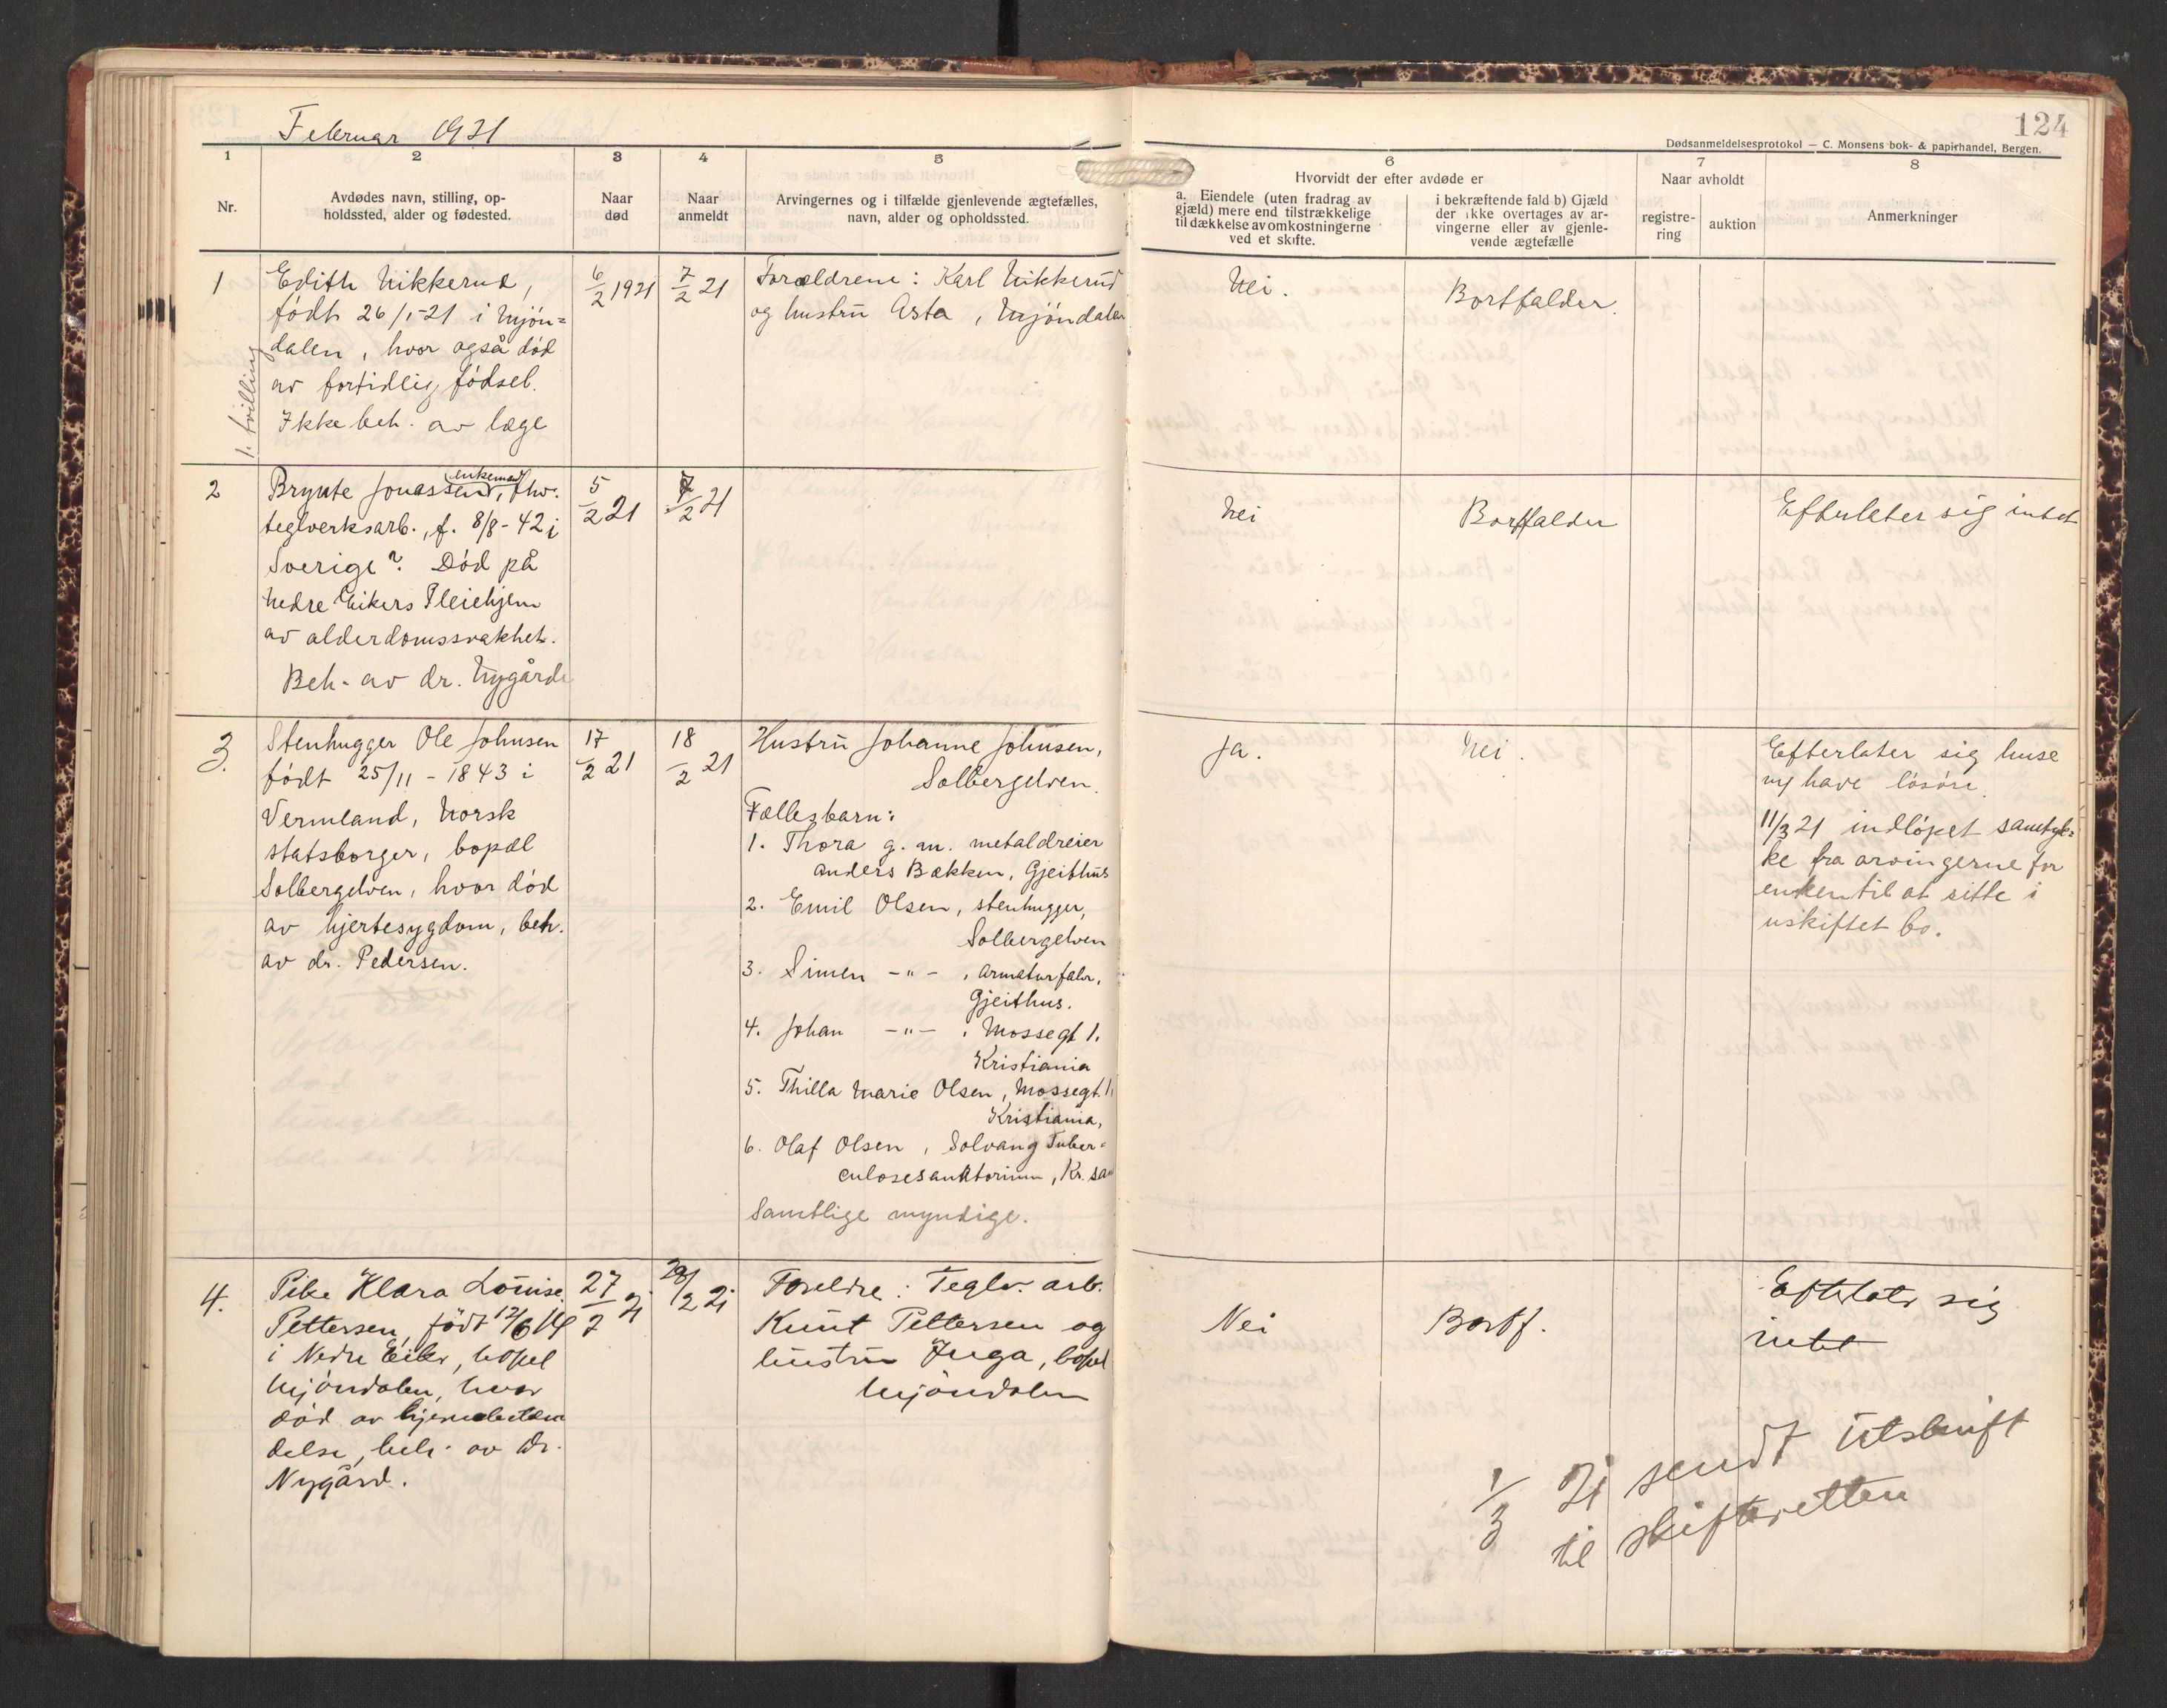 Februar 1921
124
Dødsanmeldelsesprotokol — C. Monsens bok- & papirhandel, Bergen.
1
2
3
4
5
6
7
8
Nr.
Avdødes navn, stilling, op-
holdssted, alder og fødested.
Naar
død
Naar
anmeldt
Arvingernes og i tilfælde gjenlevende ægtefælles,
navn, alder og opholdssted.
Hvorvidt der efter avdøde er
a. Eiendele (uten fradrag av
gjæld) mere end tilstrækkelige
til dækkelse av omkostningerne
ved et skifte.
i bekræftende fald b) Gjæld
der ikke overtages av ar-
vingerne eller av gjenle-
vende ægtefælle
Naar avholdt
registre-
ring
auktion
Anmerkninger
1
1. tvilling
Edith Nikkerud,
født 26/1-21 i Mjøn=
dalen, hvor også død
av fortidlig fødsel.
Ikke beh. av læge
6/2 1921
7/2 21
Forældrene: Karl Nikkerud
og hustru Asta, Mjøndalen
Nei.
Bortfalder.
2
enkemand
Brynte Jonassen, fhv.
teglverksarb., f. 8/8-42 i
Sverige? Død på
Nedre Eikers Pleiehjem
av alderdomssvakhet.
Beh. av dr. Nygård
5/2 21
7/2 21
Nei
Bortfalder
Efterlater sig intet
3.
Stenhugger Ole Johnsen
født 25/11-1843 i
Vermland, Norsk
statsborger, bopæl
Solbergelven, hvor død
av hjertesygdom, beh.
av dr. Pedersen.
17/2 21
18/2 21
Hustru Johanne Johnsen,
Solbergelven.
Fællesbarn:
1. Thora g. m. metaldreier
Anders Bakken, Gjeithus
2. Emil Olsen, stenhugger,
Solbergelven
3. Simen -"- , Armaturfabr.,
Gjeithus.
4. Johan -"- , Mossegt 1,
Kristiania
5. Thilla Marie Olsen, Mossegt. 1,
Kristiania,
6. Olaf Olsen, Solvang Tuber=
culosesanatorium, Kr.san
Samtlige myndige.
Ja.
Nei.
Efterlater sig huse
og have løsøre.
11/3 21 indløpet samtyk=
ke fra arvingerne for
enken til at sitte i
uskiftet bo.
4.
Pike Klara Louise
Pettersen, født 12/6 14
i Nedre Eiker, bopæl
Mjøndalen, hvor
død av hjernebetæn
delse, beh. av Dr.
Nygård.
27/2 21
28/2 21
Foreldre: Teglv. arb.
Knut Pettersen og
hustru Inga, bopæl
Mjøndalen
Nei
Bortf.
Efterlater sig
intet
1/3 21 sendt utskrift
til skifteretten